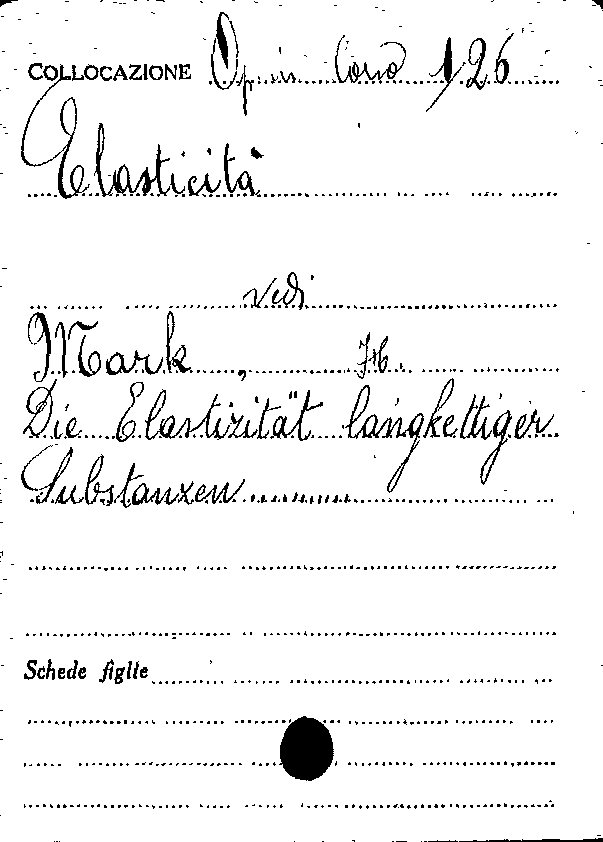 COLLOCAZIONE Op. in Corso 1/26
Elasticità
vedi
Mark, H.
Die Elastizität langkettiger
Substanzen...........
Schede figlie